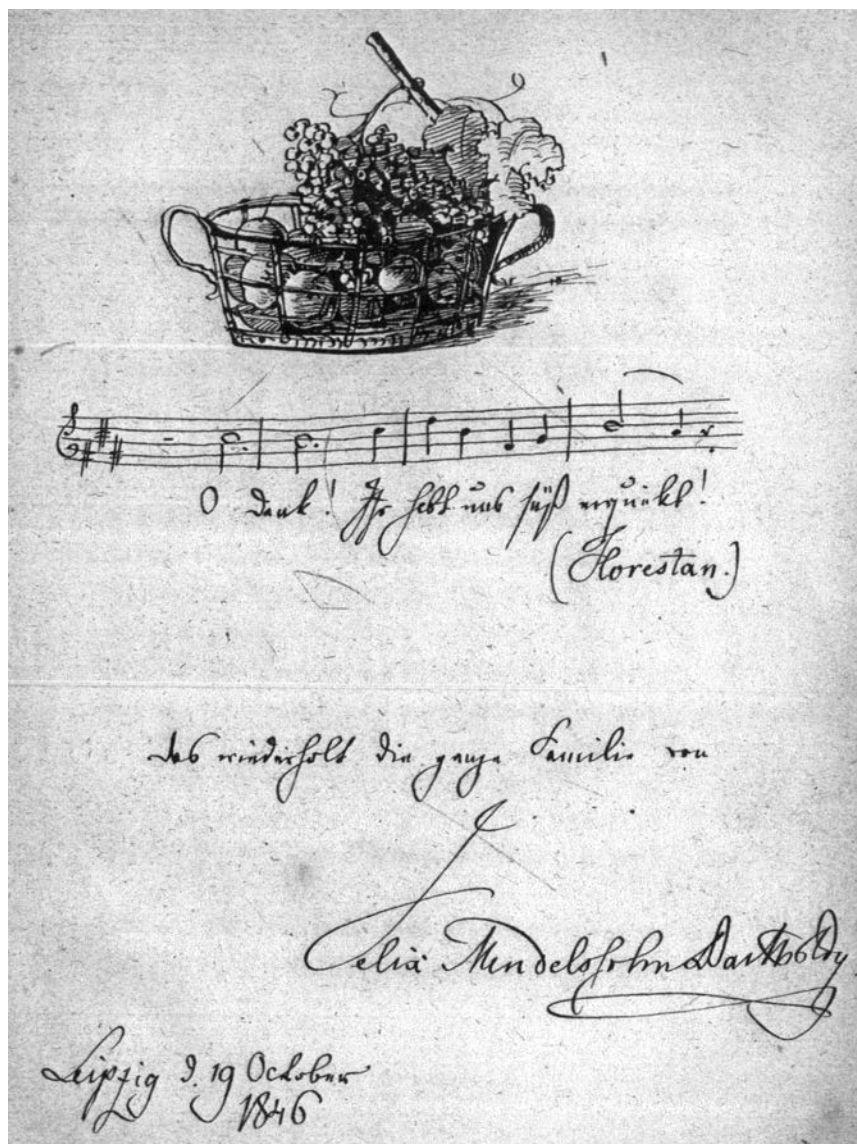 O Dank! Ihr habt uns süß erquickt!
(Florestan.)
das wiederholt die ganze Familie von
Felix Mendelssohn Bartholdy
Leipzig d. 19 October
1846